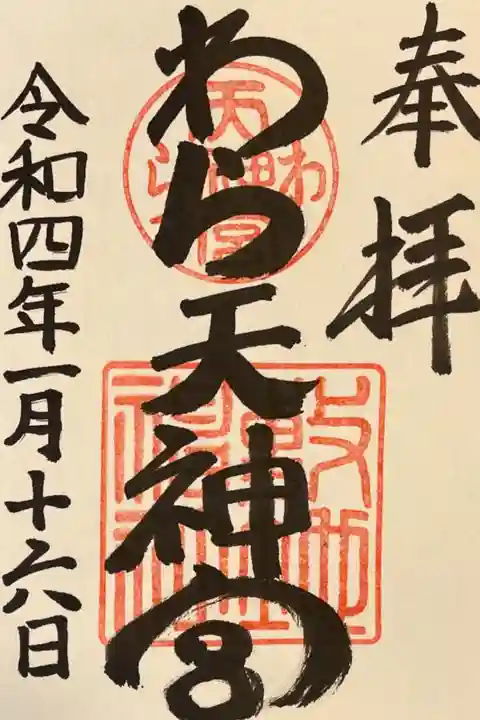 奉拝
わら天神宮
令和四年一月十六日